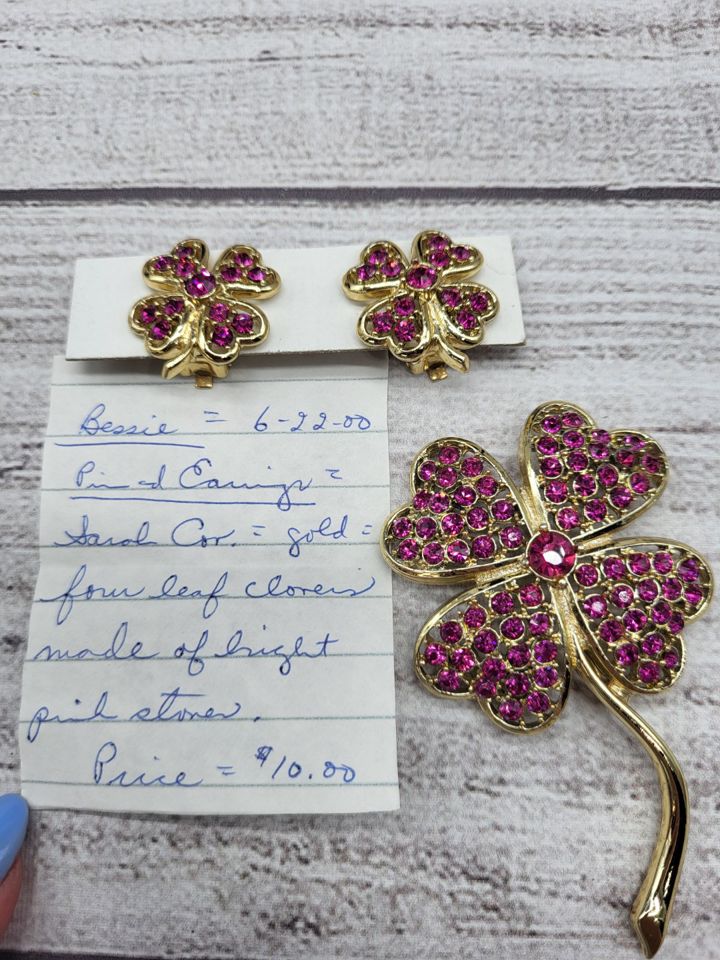 Bessie = 6-22-00
Pin and Earrings =
Sarah Cov. = gold =
four leaf clovers
made of bright
pink stones.
Price = $10.00